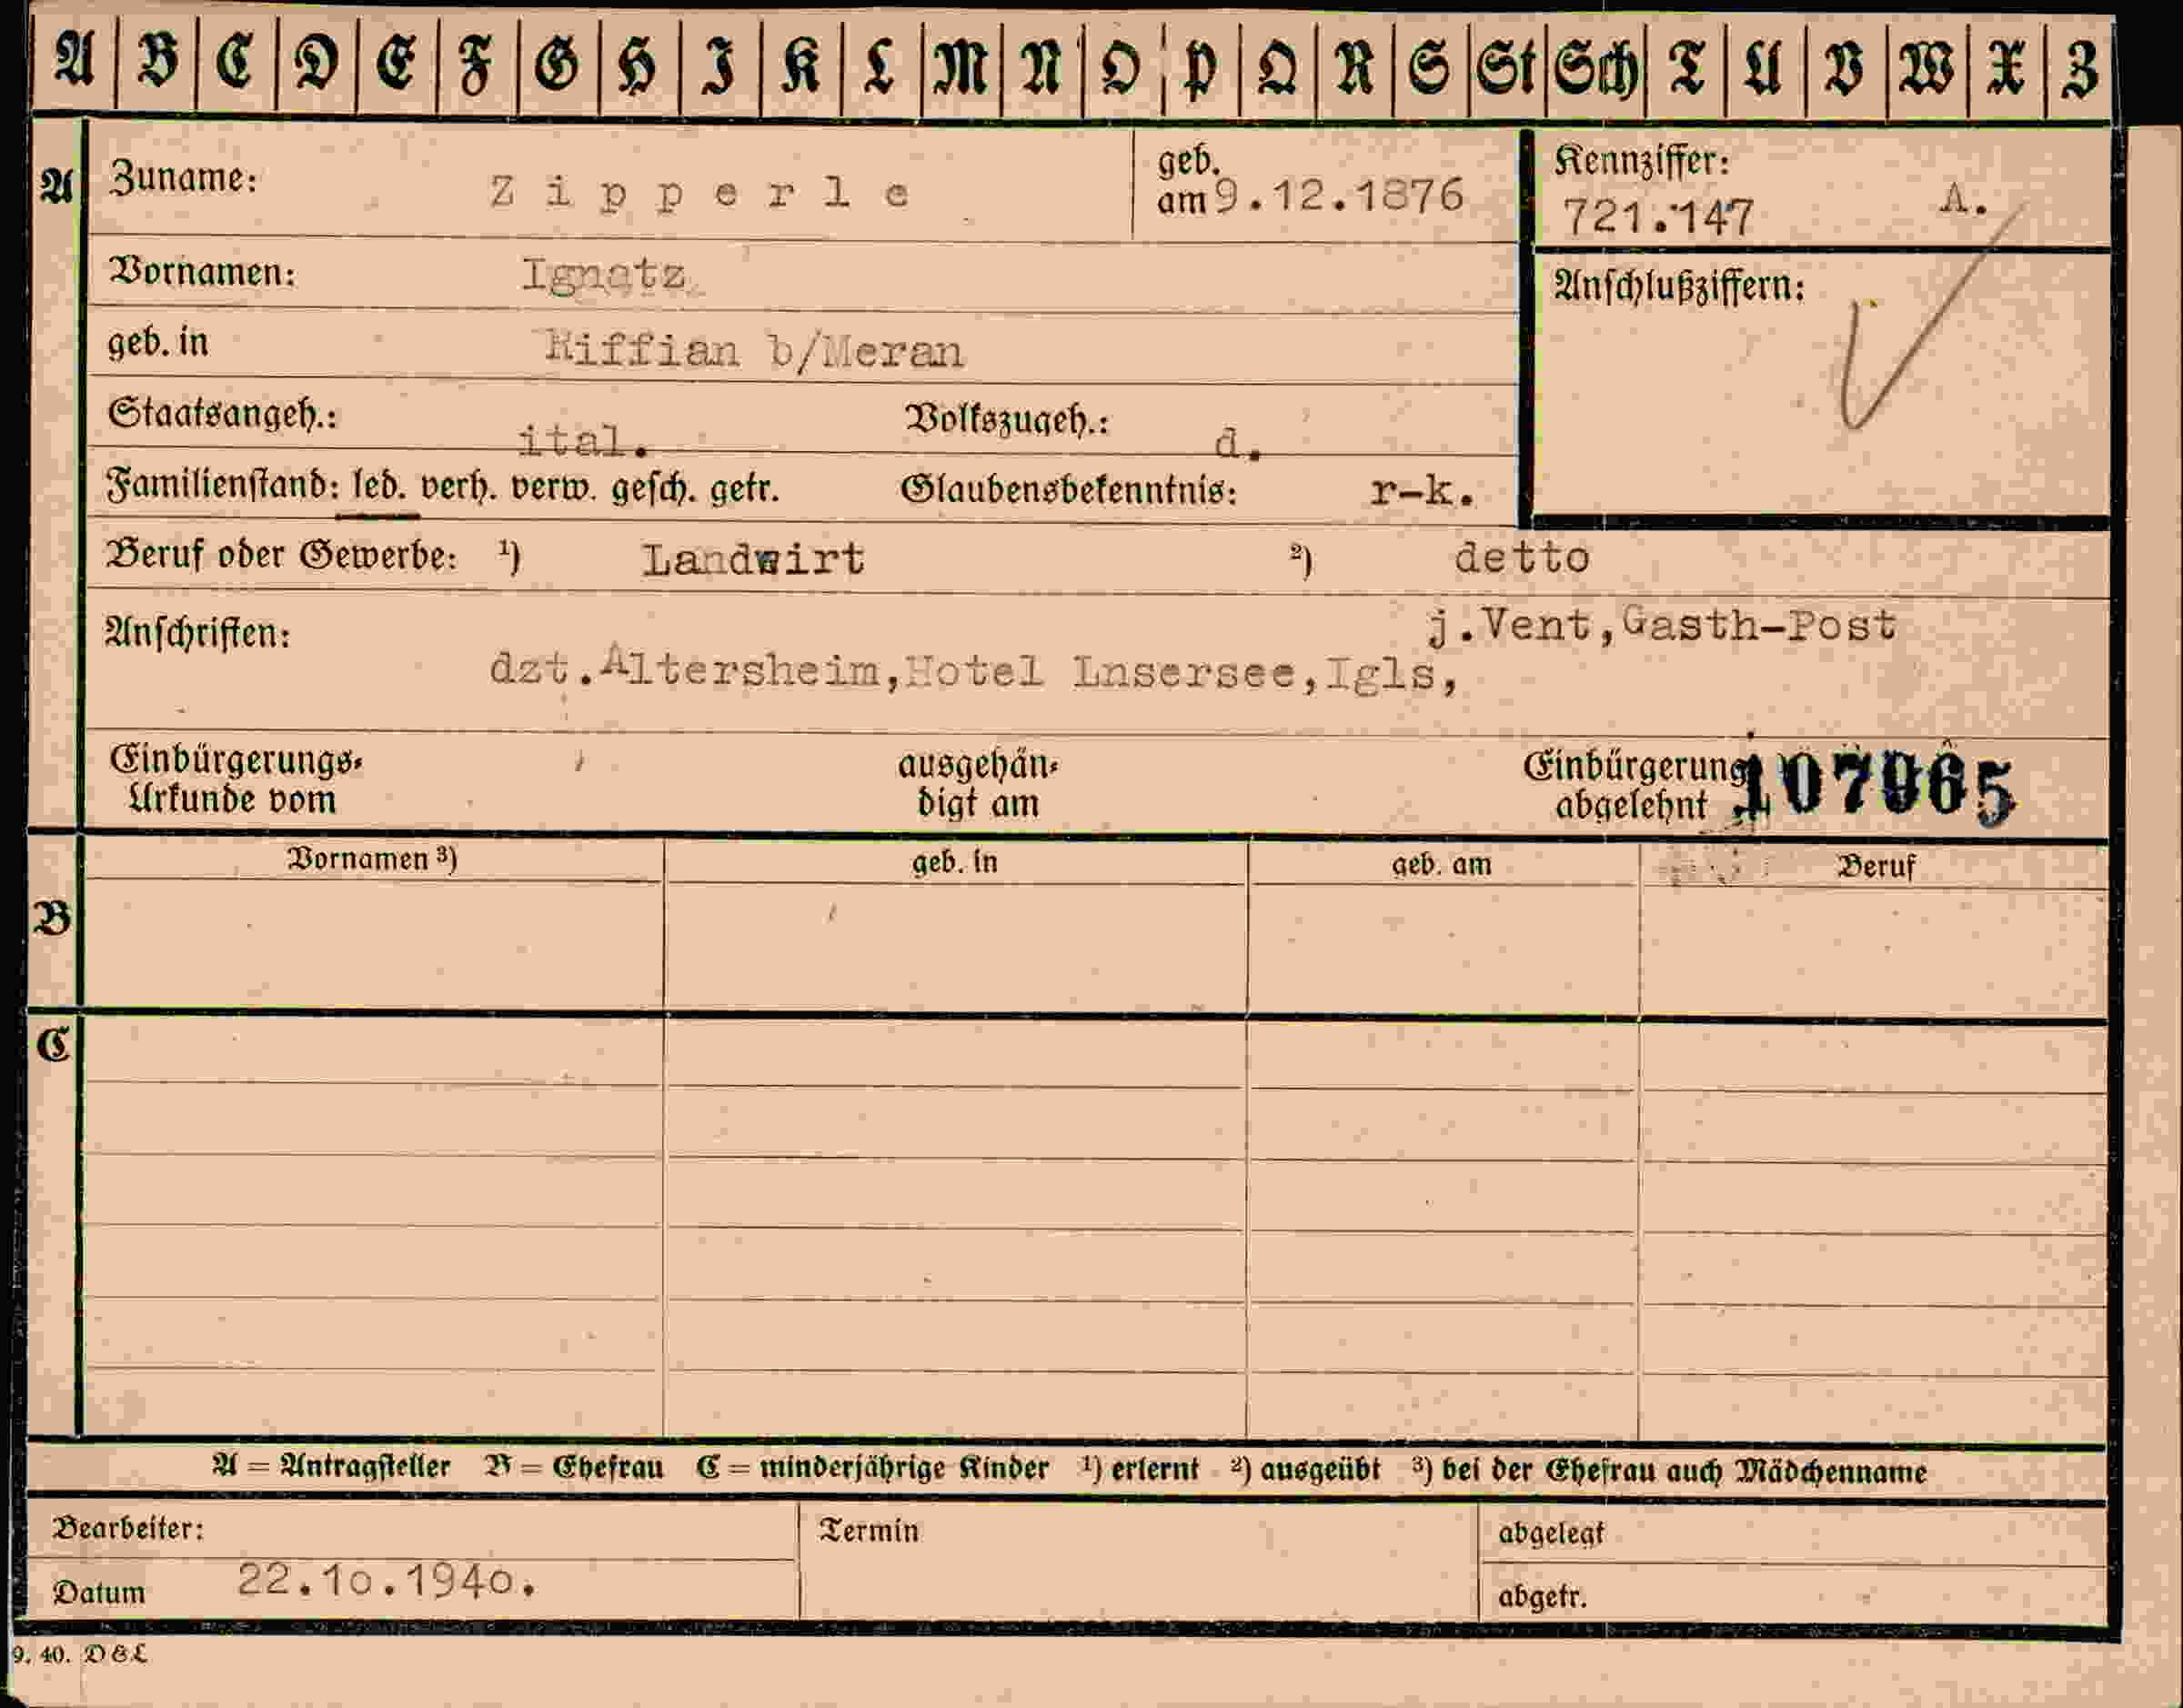 A B C D E F G H I K L M N O P Q R S St Sch T U V W X Z
A Zuname: Zipperle geb. am 9.12.1876 Kennziffer: 721.147 A.
Vornamen: Ignatz
Anschlußziffern:
geb. in Riffian b/Meran
Staatsangeh.: ital. Volkszugeh.: d.
Familienstand: led. verh. verw. gesch. getr. Glaubensbekenntnis: r-k.
Beruf oder Gewerbe: ¹) Landwirt ²) detto
Anschriften: j.Vent,Gasth-Post
dzt.Altersheim,Hotel Lnsersee,Igls,
Einbürgerungs- ausgehän- Einbürgerung
Urkunde vom digt am abgelehnt 107965
Vornamen ³) geb. in geb. am Beruf
B
C
A = Antragsteller B = Ehefrau C = minderjährige Kinder ¹) erlernt ²) ausgeübt ³) bei der Ehefrau auch Mädchenname
Bearbeiter: Termin abgelegt
Datum 22.10.1940. abgetr.
9. 40. D & L